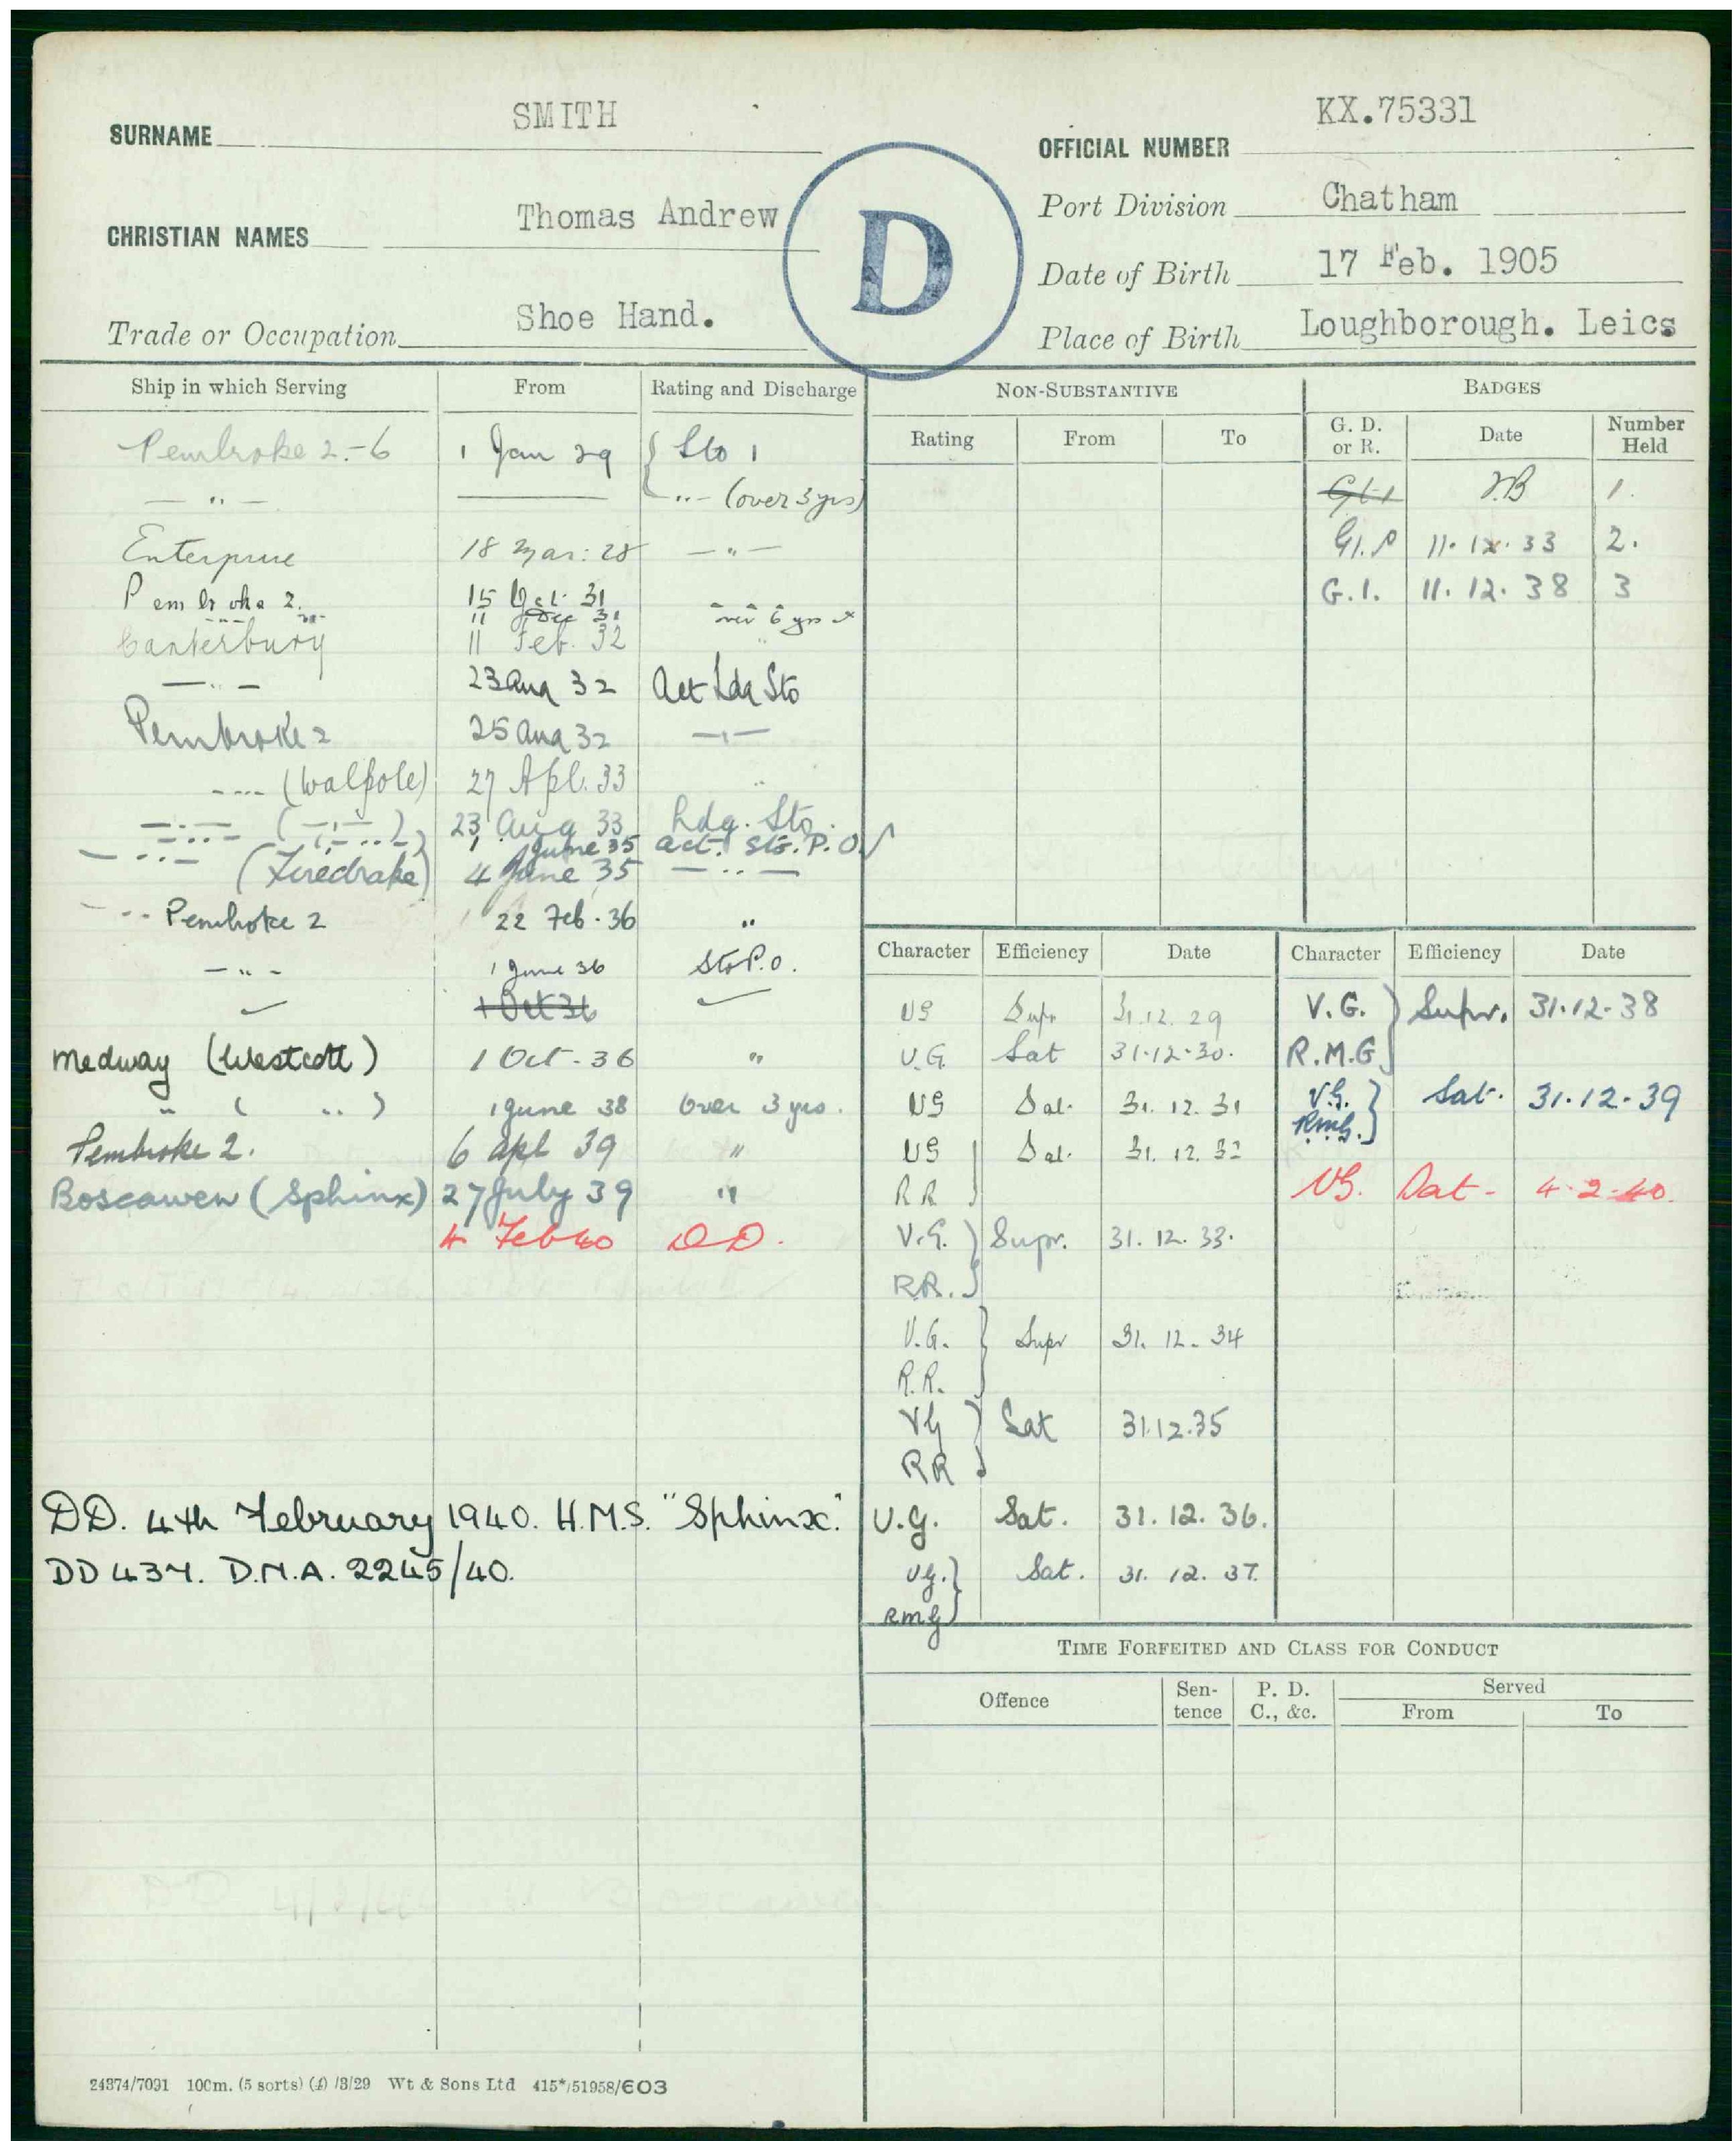 SURNAME SMITH
OFFICIAL NUMBER KX.75331
CHRISTIAN NAMES Thomas Andrew
Port Division Chatham
D
Date of Birth 17 Feb. 1905
Trade or Occupation Shoe Hand.
Place of Birth Loughborough. Leics
Ship in which Serving From Rating and Discharge
Pembroke 2.-6 1 Jan 29 Sto 1
— " — —— " — (over 3 yrs)
Enterprise 18 Mar: 28 — " —
Pembroke 2. 15 Oct 31
— " — 11 Dec 31 over 6 yrs
Canterbury 11 Feb. 32 "
— " — 23 Aug 32 Act Ldg Sto
Pembroke 2 25 Aug 32 — " —
---- (Walpole) 27 Apl. 33 "
— " — ( — " — ) 23 Aug 33 Ldg. Sto.
— " — ( — " — ) 1 June 35 act. Sto. P.O. ✓
— " — (Firedrake) 4 June 35 — " —
- -- Pembroke 2 22 Feb. 36 "
— " — 1 June 36 Sto P.O.
1 Oct 36
Medway (Westcott) 1 Oct - 36 "
" ( " ) 1 June 38 Over 3 yrs.
Pembroke 2. 6 Apl 39 "
Boscawen (Sphinx) 27 July 39 "
4 Feb 40 DD.
DD. 4th February 1940. H.M.S. "Sphinx."
DD 437. D.N.A. 2245/40.
NON-SUBSTANTIVE
Rating From To
BADGES
G. D. or R. Date Number Held
J.B 1.
G1.P 11.12.33 2.
G.1. 11.12.38 3
Character Efficiency Date Character Efficiency Date
VG Supr 31.12.29
V.G. Sat 31.12.30.
VG Sat. 31.12.31
VG RR Sat. 31.12.32
V.G. RR. Supr. 31.12.33.
V.G. R.R. Supr 31.12.34
VG RR Sat 31.12.35
V.G. Sat. 31.12.36.
VG. RMG Sat. 31.12.37.
V.G. R.M.G. Supr. 31.12.38
V.G. RMG. Sat. 31.12.39
VG. Sat - 4.2.40.
TIME FORFEITED AND CLASS FOR CONDUCT
Offence Sen-tence P. D. C., &c. Served
From To
24374/7091 100m. (5 sorts) (4) /3/29 Wt & Sons Ltd 415*/51958/603